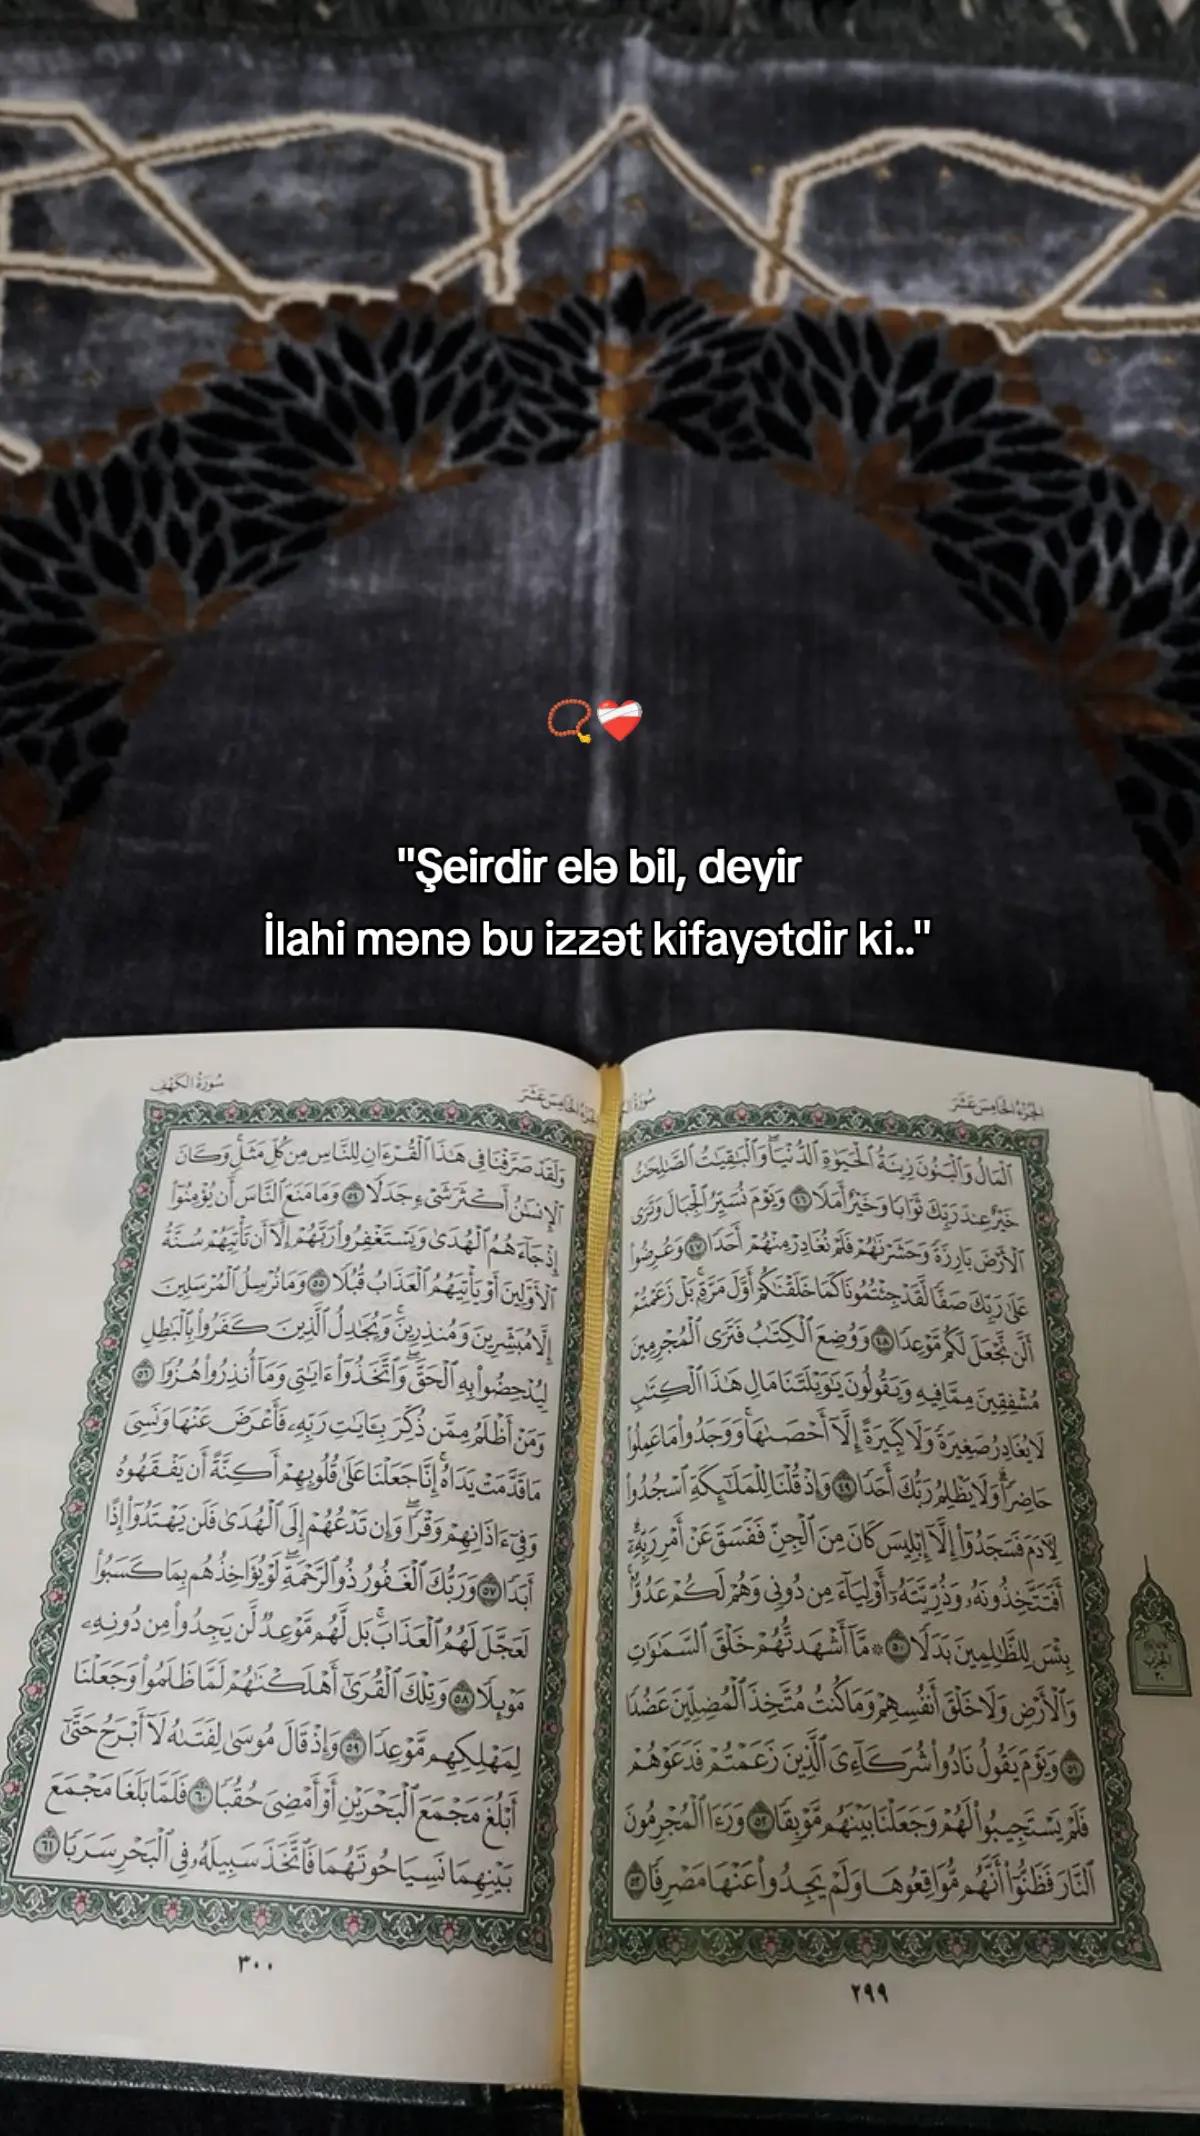 "Şeirdir elə bil, deyir
İlahi mənə bu izzət kifayətdir ki.."
الجزء الخامس عشر
سورة الكهف
ٱلْمَالُ وَٱلْبَنُونَ زِينَةُ ٱلْحَيَوٰةِ ٱلدُّنْيَا ۖ وَٱلْبَٰقِيَٰتُ ٱلصَّٰلِحَٰتُ
خَيْرٌ عِندَ رَبِّكَ ثَوَابًا وَخَيْرٌ أَمَلًا ٤٦ وَيَوْمَ نُسَيِّرُ ٱلْجِبَالَ وَتَرَى
ٱلْأَرْضَ بَارِزَةً وَحَشَرْنَٰهُمْ فَلَمْ نُغَادِرْ مِنْهُمْ أَحَدًا ٤٧ وَعُرِضُوا۟
عَلَىٰ رَبِّكَ صَفًّا لَّقَدْ جِئْتُمُونَا كَمَا خَلَقْنَٰكُمْ أَوَّلَ مَرَّةٍۭ ۚ بَلْ زَعَمْتُمْ
أَلَّن نَّجْعَلَ لَكُم مَّوْعِدًا ٤٨ وَوُضِعَ ٱلْكِتَٰبُ فَتَرَى ٱلْمُجْرِمِينَ
مُشْفِقِينَ مِمَّا فِيهِ وَيَقُولُونَ يَٰوَيْلَتَنَا مَالِ هَٰذَا ٱلْكِتَٰبِ
لَا يُغَادِرُ صَغِيرَةً وَلَا كَبِيرَةً إِلَّآ أَحْصَىٰهَا ۚ وَوَجَدُوا۟ مَا عَمِلُوا۟
حَاضِرًا ۗ وَلَا يَظْلِمُ رَبُّكَ أَحَدًا ٤٩ وَإِذْ قُلْنَا لِلْمَلَٰٓئِكَةِ ٱسْجُدُوا۟
لِـَٔادَمَ فَسَجَدُوٓا۟ إِلَّآ إِبْلِيسَ كَانَ مِنَ ٱلْجِنِّ فَفَسَقَ عَنْ أَمْرِ رَبِّهِۦٓ ۗ
أَفَتَتَّخِذُونَهُۥ وَذُرِّيَّتَهُۥٓ أَوْلِيَآءَ مِن دُونِى وَهُمْ لَكُمْ عَدُوٌّۢ ۚ
بِئْسَ لِلظَّٰلِمِينَ بَدَلًا ٥٠ ۞ مَّآ أَشْهَدتُّهُمْ خَلْقَ ٱلسَّمَٰوَٰتِ
وَٱلْأَرْضِ وَلَا خَلْقَ أَنفُسِهِمْ وَمَا كُنتُ مُتَّخِذَ ٱلْمُضِلِّينَ عَضُدًا
٥١ وَيَوْمَ يَقُولُ نَادُوا۟ شُرَكَآءِىَ ٱلَّذِينَ زَعَمْتُمْ فَدَعَوْهُمْ
فَلَمْ يَسْتَجِيبُوا۟ لَهُمْ وَجَعَلْنَا بَيْنَهُم مَّوْبِقًا ٥٢ وَرَءَا ٱلْمُجْرِمُونَ
ٱلنَّارَ فَظَنُّوٓا۟ أَنَّهُم مُّوَاقِعُوهَا وَلَمْ يَجِدُوا۟ عَنْهَا مَصْرِفًا ٥٣
٢٩٩
الجزء الخامس عشر
سورة الكهف
وَلَقَدْ صَرَّفْنَا فِى هَٰذَا ٱلْقُرْءَانِ لِلنَّاسِ مِن كُلِّ مَثَلٍ ۚ وَكَانَ
ٱلْإِنسَٰنُ أَكْثَرَ شَىْءٍ جَدَلًا ٥٤ وَمَا مَنَعَ ٱلنَّاسَ أَن يُؤْمِنُوٓا۟
إِذْ جَآءَهُمُ ٱلْهُدَىٰ وَيَسْتَغْفِرُوا۟ رَبَّهُمْ إِلَّآ أَن تَأْتِيَهُمْ سُنَّةُ
ٱلْأَوَّلِينَ أَوْ يَأْتِيَهُمُ ٱلْعَذَابُ قُبُلًا ٥٥ وَمَا نُرْسِلُ ٱلْمُرْسَلِينَ
إِلَّا مُبَشِّرِينَ وَمُنذِرِينَ ۚ وَيُجَٰدِلُ ٱلَّذِينَ كَفَرُوا۟ بِٱلْبَٰطِلِ
لِيُدْحِضُوا۟ بِهِ ٱلْحَقَّ ۖ وَٱتَّخَذُوٓا۟ ءَايَٰتِى وَمَآ أُنذِرُوا۟ هُزُوًا ٥٦
وَمَنْ أَظْلَمُ مِمَّن ذُكِّرَ بِـَٔايَٰتِ رَبِّهِۦ فَأَعْرَضَ عَنْهَا وَنَسِىَ
مَا قَدَّمَتْ يَدَاهُ ۚ إِنَّا جَعَلْنَا عَلَىٰ قُلُوبِهِمْ أَكِنَّةً أَن يَفْقَهُوهُ
وَفِىٓ ءَاذَانِهِمْ وَقْرًا ۖ وَإِن تَدْعُهُمْ إِلَى ٱلْهُدَىٰ فَلَن يَهْتَدُوٓا۟ إِذًا
أَبَدًا ٥٧ وَرَبُّكَ ٱلْغَفُورُ ذُو ٱلرَّحْمَةِ ۖ لَوْ يُؤَاخِذُهُم بِمَا كَسَبُوا۟
لَعَجَّلَ لَهُمُ ٱلْعَذَابَ ۚ بَل لَّهُم مَّوْعِدٌ لَّن يَجِدُوا۟ مِن دُونِهِۦ
مَوْئِلًا ٥٨ وَتِلْكَ ٱلْقُرَىٰٓ أَهْلَكْنَٰهُمْ لَمَّا ظَلَمُوا۟ وَجَعَلْنَا
لِمَهْلِكِهِم مَّوْعِدًا ٥٩ وَإِذْ قَالَ مُوسَىٰ لِفَتَىٰهُ لَآ أَبْرَحُ حَتَّىٰٓ
أَبْلُغَ مَجْمَعَ ٱلْبَحْرَيْنِ أَوْ أَمْضِىَ حُقُبًا ٦٠ فَلَمَّا بَلَغَا مَجْمَعَ
بَيْنِهِمَا نَسِيَا حُوتَهُمَا فَٱتَّخَذَ سَبِيلَهُۥ فِى ٱلْبَحْرِ سَرَبًا ٦١
٣٠٠